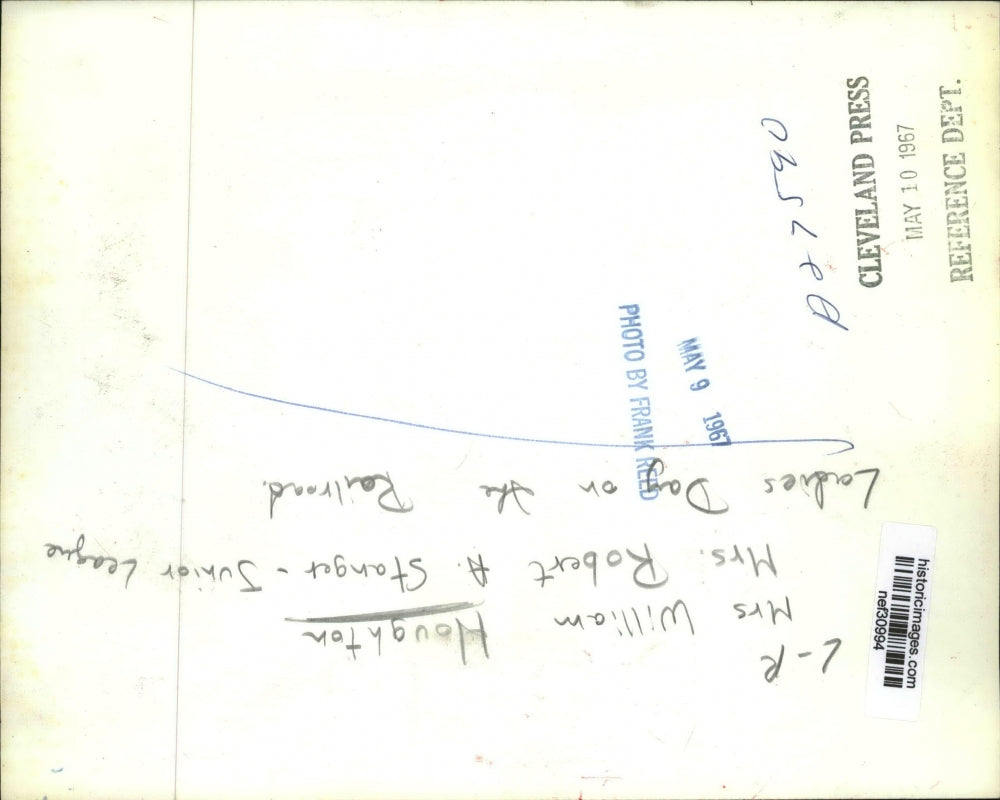 L-R
Mrs William Houghton
Mrs. Robert A. Stanger - Junior League
Ladies Day on the Railroad.
PHOTO BY FRANK REED
MAY 9 1967
CLEVELAND PRESS
MAY 10 1967
REFERENCE DEPT.
historicimages.com
nef30994